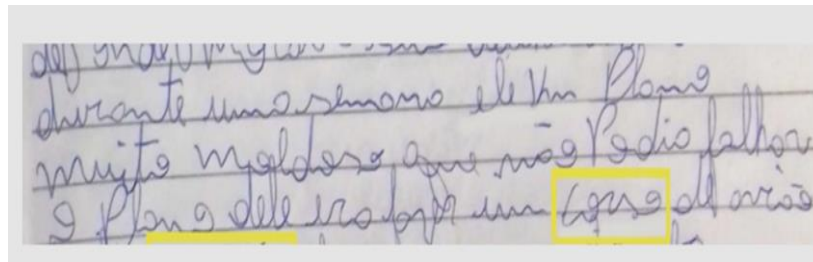 durante uma semana ele um Plano
muito maldoso que não Podio falhar
o Plano dele era fazer um de avião